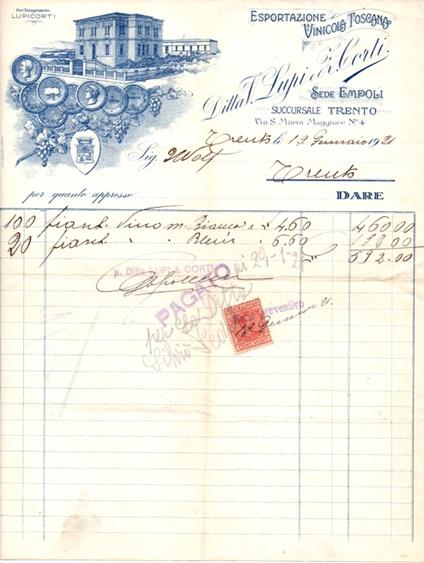 Per Telegrammi:
LUPICORTI
ESPORTAZIONE
VINICOLA TOSCANA
Ditta F. Lupi & Corti
SEDE EMPOLI
SUCCURSALE TRENTO
Via S. Maria Maggiore N° 4
Trento li 19 Gennaio 1921
Sig. Wolf
Trento
per quanto appresso DARE
100 fiaschi Vino 4.60 460.00
20 fiaschi " " 6.60 132.00
592.00
p. Ditta LUPI & CORTI
PAGATO
li 29-1-21
per la Ditta
Silvio
preventivo